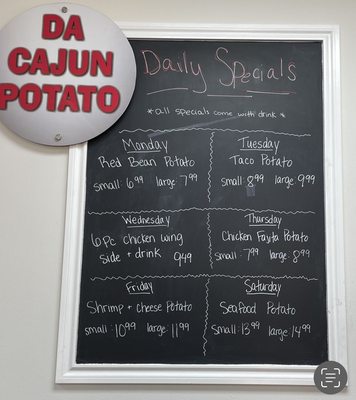 DA
CAJUN
POTATO
Daily Specials
*all specials come with drink*
Monday
Red Bean Potato
small: 6.99 large: 7.99
Tuesday
Taco Potato
small: 8.99 large: 9.99
Wednesday
6pc chicken wing
side + drink 9.49
Thursday
Chicken Fajita Potato
small: 7.99 large: 8.99
Friday
Shrimp + cheese Potato
small: 10.99 large: 11.99
Saturday
Seafood Potato
small: 13.99 large: 14.99